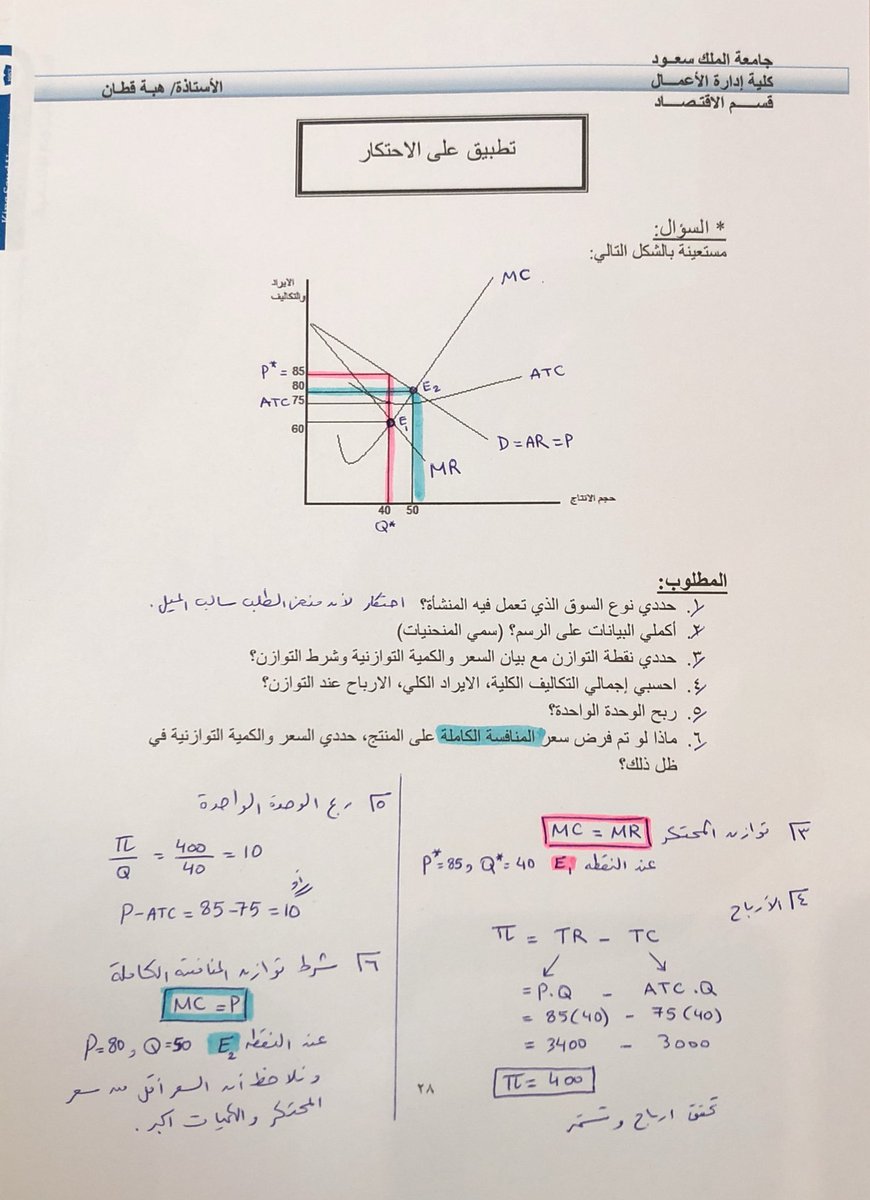 جامعة الملك سعود
كلية إدارة الأعمال
قسم الاقتصاد
الأستاذة/ هبة قطان
تطبيق على الاحتكار
* السؤال:
مستعينة بالشكل التالي:
الايراد
والتكاليف
MC
P* = 85
80
ATC 75
60
E2
E1
ATC
D = AR = P
MR
حجم الانتاج
40 50
Q*
المطلوب:
١. حددي نوع السوق الذي تعمل فيه المنشأة؟ احتكار لأن منحنى الطلب سالب الميل.
٢. أكملي البيانات على الرسم؟ (سمي المنحنيات)
٣. حددي نقطة التوازن مع بيان السعر والكمية التوازنية وشرط التوازن؟
٤. احسبي إجمالي التكاليف الكلية، الايراد الكلي، الارباح عند التوازن؟
٥. ربح الوحدة الواحدة؟
٦. ماذا لو تم فرض سعر المنافسة الكاملة على المنتج، حددي السعر والكمية التوازنية في
ظل ذلك؟
٣ توازن المحتكر MC = MR
عند النقطه E1 P*=85, Q*=40
٤ الأرباح
π = TR - TC
= P.Q - ATC.Q
= 85(40) - 75(40)
= 3400 - 3000
π = 400
تحقق ارباح وتستمر
٥ ربح الوحدة الواحدة
π/Q = 400/40 = 10
أو
P-ATC = 85-75 = 10
٦ شرط توازن المنافسة الكاملة
MC = P
عند النقطه E2 P=80, Q=50
ونلاحظ أن السعر أقل من سعر
المحتكر والكميات اكبر.
٢٨